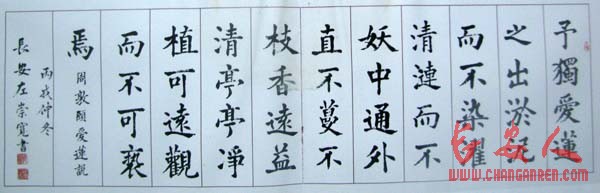 予獨愛蓮
之出淤泥
而不染濯
清漣而不
妖中通外
直不蔓不
枝香遠益
清亭亭淨
植可遠觀
而不可褻
焉
周敦頤愛蓮說
丙戌仲冬
長安左崇寬書
长安人
WWW.CHANGANREN.COM